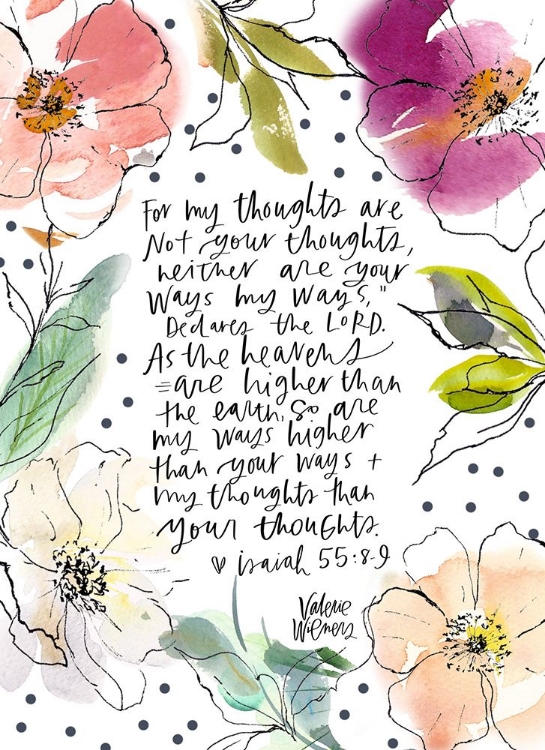 For my thoughts are
Not your thoughts,
neither are your
Ways my ways,"
Declares the LORD.
As the heavens
are higher than
the earth, so are
my ways higher
than your ways +
my thoughts than
your thoughts.
♡ isaiah 55:8-9
Valerie
Wieners